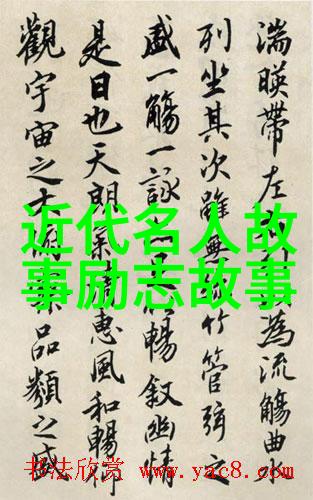 湍暎帶左為流觴曲
列坐其次雖無竹管弦之
盛一觴一詠暢叙幽情
是日也天朗氣惠風和暢仰
觀宇宙之大品類之盛
近代名人故
事励志故事
书法欣赏 www.yac8.com